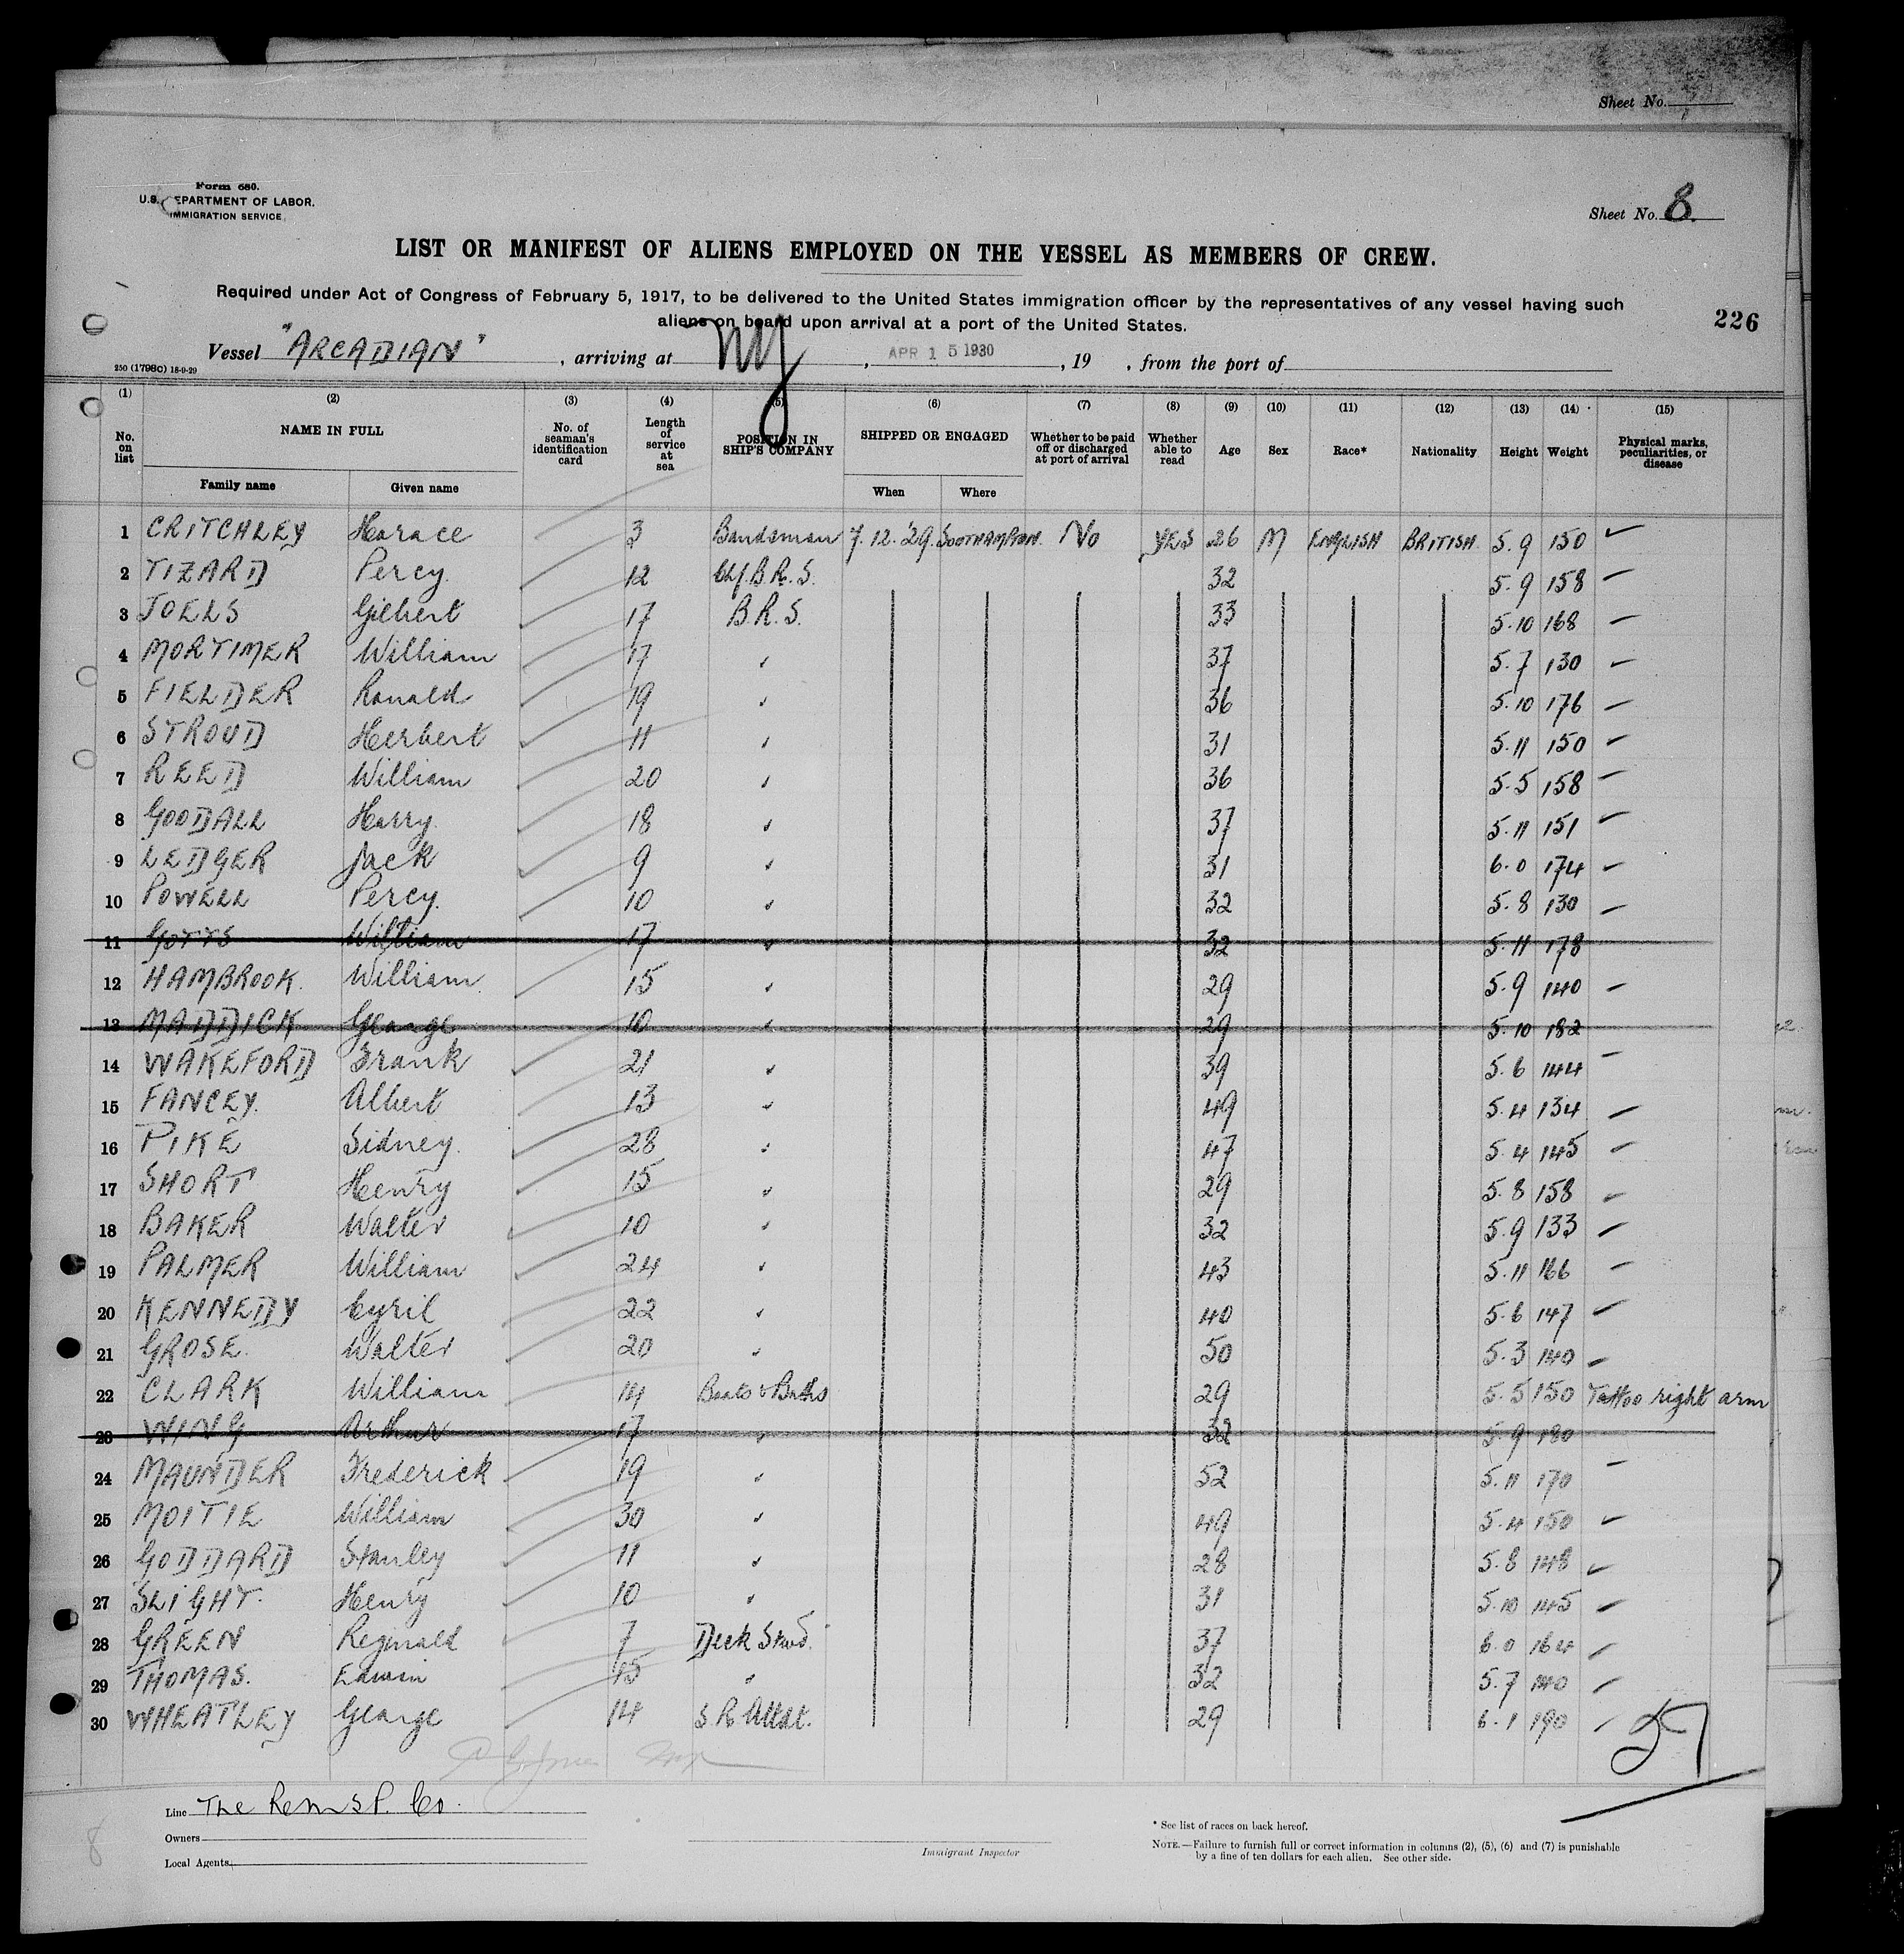 Sheet No.
Form 680.
U.S. DEPARTMENT OF LABOR.
IMMIGRATION SERVICE
Sheet No. 8.
LIST OR MANIFEST OF ALIENS EMPLOYED ON THE VESSEL AS MEMBERS OF CREW.
Required under Act of Congress of February 5, 1917, to be delivered to the United States immigration officer by the representatives of any vessel having such
aliens on board upon arrival at a port of the United States.
226
Vessel "ARCADIAN", arriving at NY, APR 15 1930, 19 , from the port of
250 (1798C) 18-9-29
(1) (2) (3) (4) (5) (6) (7) (8) (9) (10) (11) (12) (13) (14) (15)
No. on list NAME IN FULL No. of seaman's identification card Length of service at sea POSITION IN SHIP'S COMPANY SHIPPED OR ENGAGED Whether to be paid off or discharged at port of arrival Whether able to read Age Sex Race* Nationality Height Weight Physical marks, peculiarities, or disease
Family name Given name When Where
1 CRITCHLEY Horace 3 Bandsman 7.12.'29. SOUTHAMPTON. No YES 26 M ENGLISH BRITISH. 5.9 150
2 TIZARD Percy. 12 Chf. B.R.S. 32 5.9 158
3 JOELS Gilbert 17 B.R.S. 33 5.10 168
4 MORTIMER William 17 37 5.7 130
5 FIELDER Ronald 19 36 5.10 176
6 STROUD Herbert 11 31 5.11 150
7 REED William 20 36 5.5 158
8 GOODALL Harry. 18 37 5.11 151
9 LEDGER Jack 9 31 6.0 174
10 POWELL Percy. 10 32 5.8 130
11 GOTTS William 17 32 5.11 178
12 HAMBROOK. William. 15 29 5.9 140
13 MADDICK George 10 29 5.10 182
14 WAKEFORD Frank 21 39 5.6 144
15 FANCEY. Albert 13 49 5.4 134
16 PIKE Sidney. 28 47 5.4 145
17 SHORT Henry 15 29 5.8 158
18 BAKER Walter 10 32 5.9 133
19 PALMER William 24 43 5.11 166
20 KENNEDY Cyril 22 40 5.6 147
21 GROSE. Walter 20 50 5.3 140
22 CLARK William 14 Boots & Baths 29 5.5 150 Tattoo right arm
23 WING Arthur 17 32 5.9 180
24 MAUNDER Frederick 19 52 5.11 170
25 MOITIE William 30 49 5.4 150
26 GODDARD Stanley 11 28 5.8 148
27 SLIGHT. Henry 10 31 5.10 145
28 GREEN Reginald 7 Deck Stwd. 37 6.0 164
29 THOMAS. Edwin 15 32 5.7 140
30 WHEATLEY George 14 S.R. Attdt. 29 6.1 190
27
Line The Rem S.P. Co.
Owners
Local Agents
8
Immigrant Inspector
* See list of races on back hereof.
NOTE.—Failure to furnish full or correct information in columns (2), (5), (6) and (7) is punishable
by a fine of ten dollars for each alien. See other side.